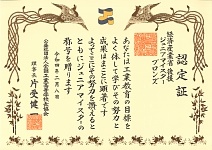 認定証
経済産業省後援
ジュニアマイスター
ブロンズ
あなたは工業教育の目標を
よく体して学びその努力と
成果はまことに顕著です
よってここにその努力を讃えると
ともにジュニアマイスターの
称号を贈ります
公益社団法人全国工業高等学校長協会
理事長